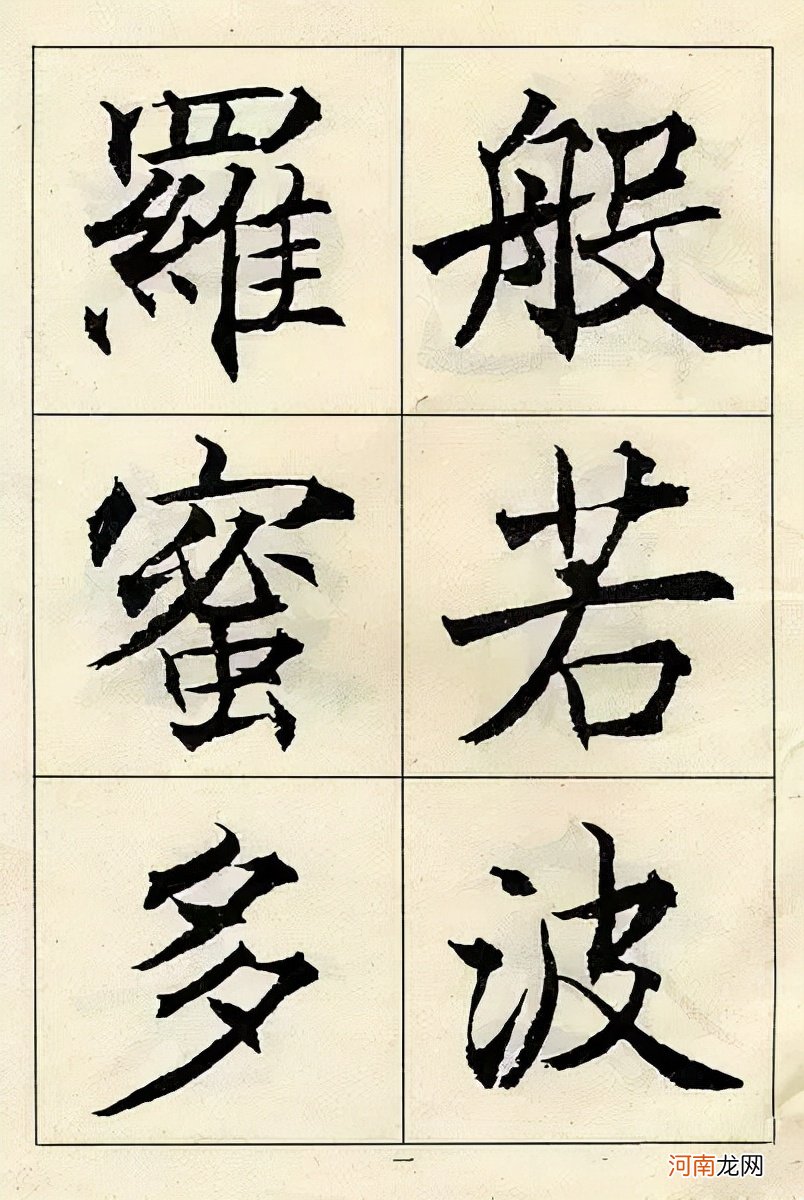 般若波
羅蜜多
一
河南龙网